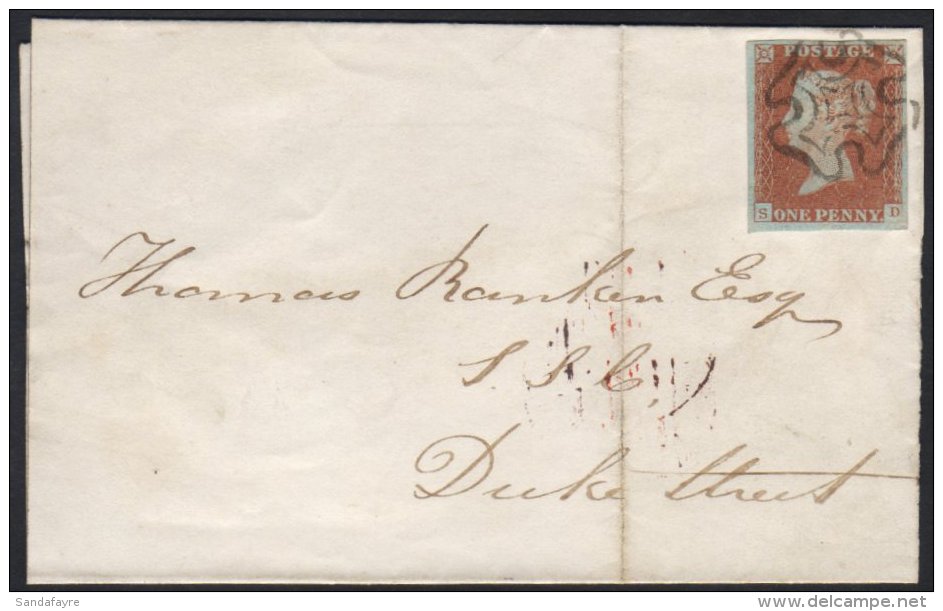 POSTAGE
S ONE PENNY D
Thomas Ranken Esq
S. S. C.
Duke Street
Sandafayre
www.delcampe.net